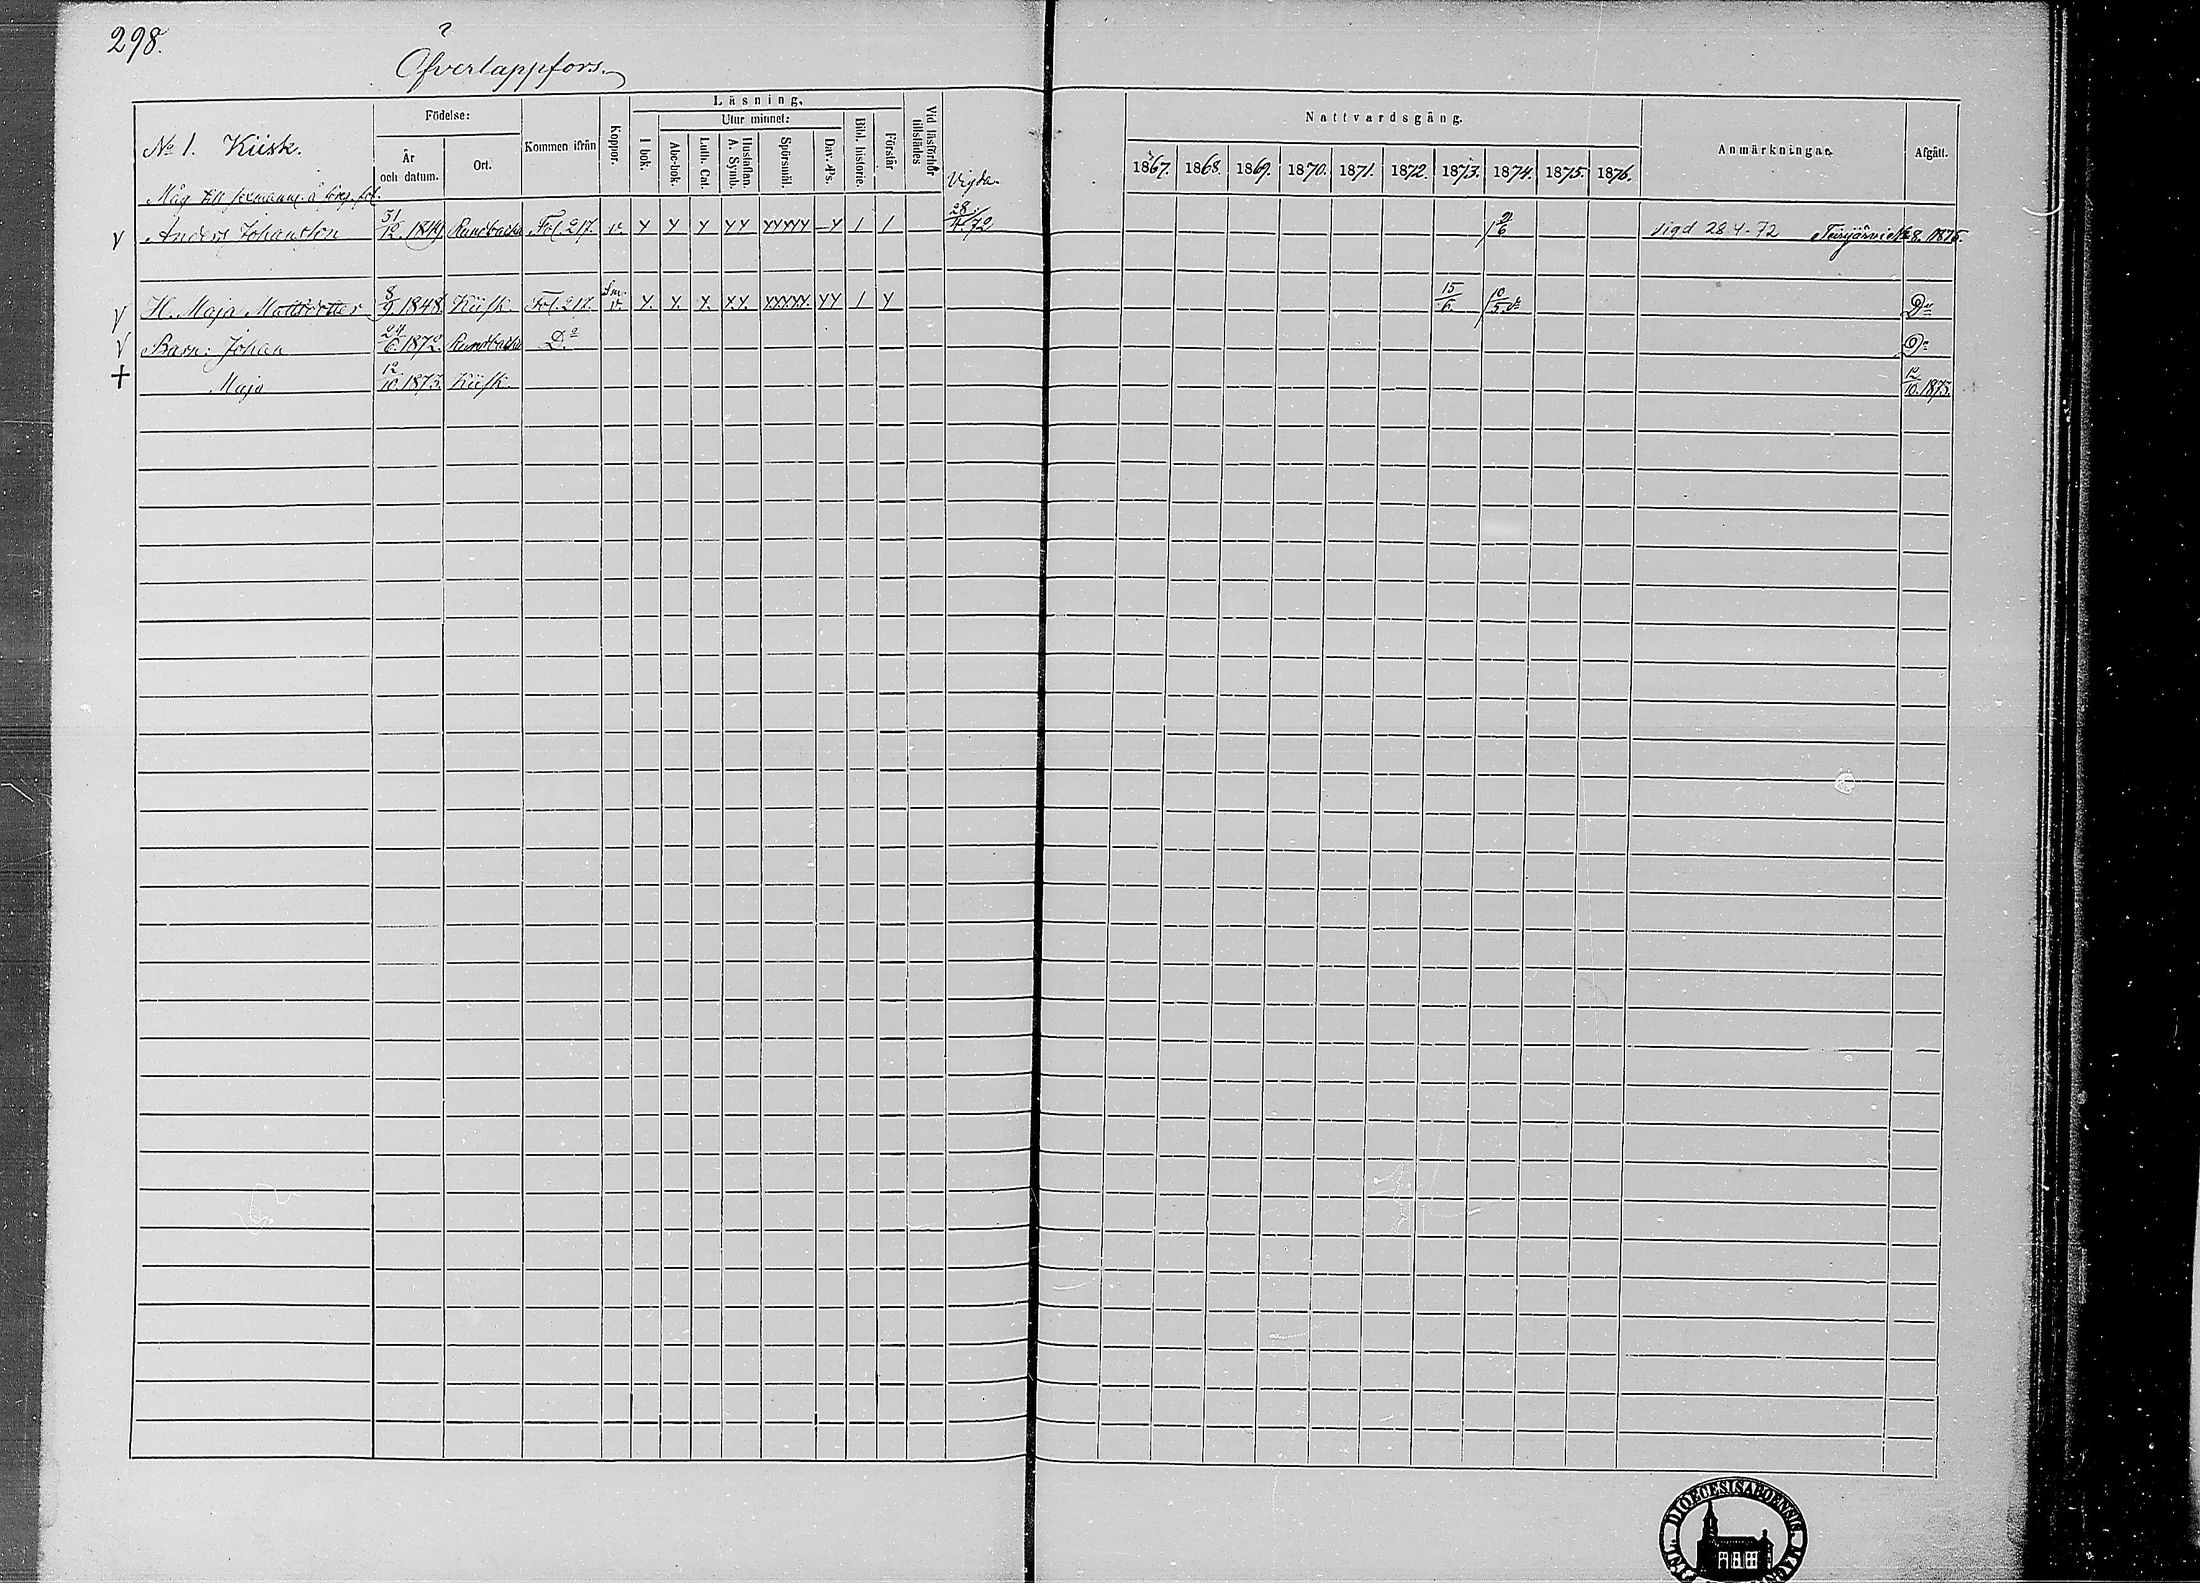 298.
Öfverlappfors.
No 1. Kiisk.
Födelse:
År och datum.
Ort.
Kommen ifrån
Koppor.
Läsning.
I bok.
Utur minnet:
Abc-bok.
Luth. Cat.
Hustaflan. A. Symb.
Spörsmål.
Dav. Ps.
Bibl. historie.
Förstår
Vid läsförhör tillstädes
Vigda.
Nattvardsgång.
1867. 1868. 1869. 1870. 1871. 1872. 1873. 1874. 1875. 1876.
Anmärkningar.
Afgått.
Måg till å föreg. fol.
v Anders Johansson 31/12 1849 Rundbacka Fol. 217. v. 28/4 72 vigd 28.4.-72 Terijärvi No 8. 1875.
v H. Maja Mattsdotter 8/9 1848. Kiisk. Fol. 217. v. 15/6. 10/5 Do
v Barn: Johan 24/6 1872. Rundbacka Do Do
+ Maja 12/10 1873. Kiisk. 12/10. 1873.
DIOECESIS ABOENSIS